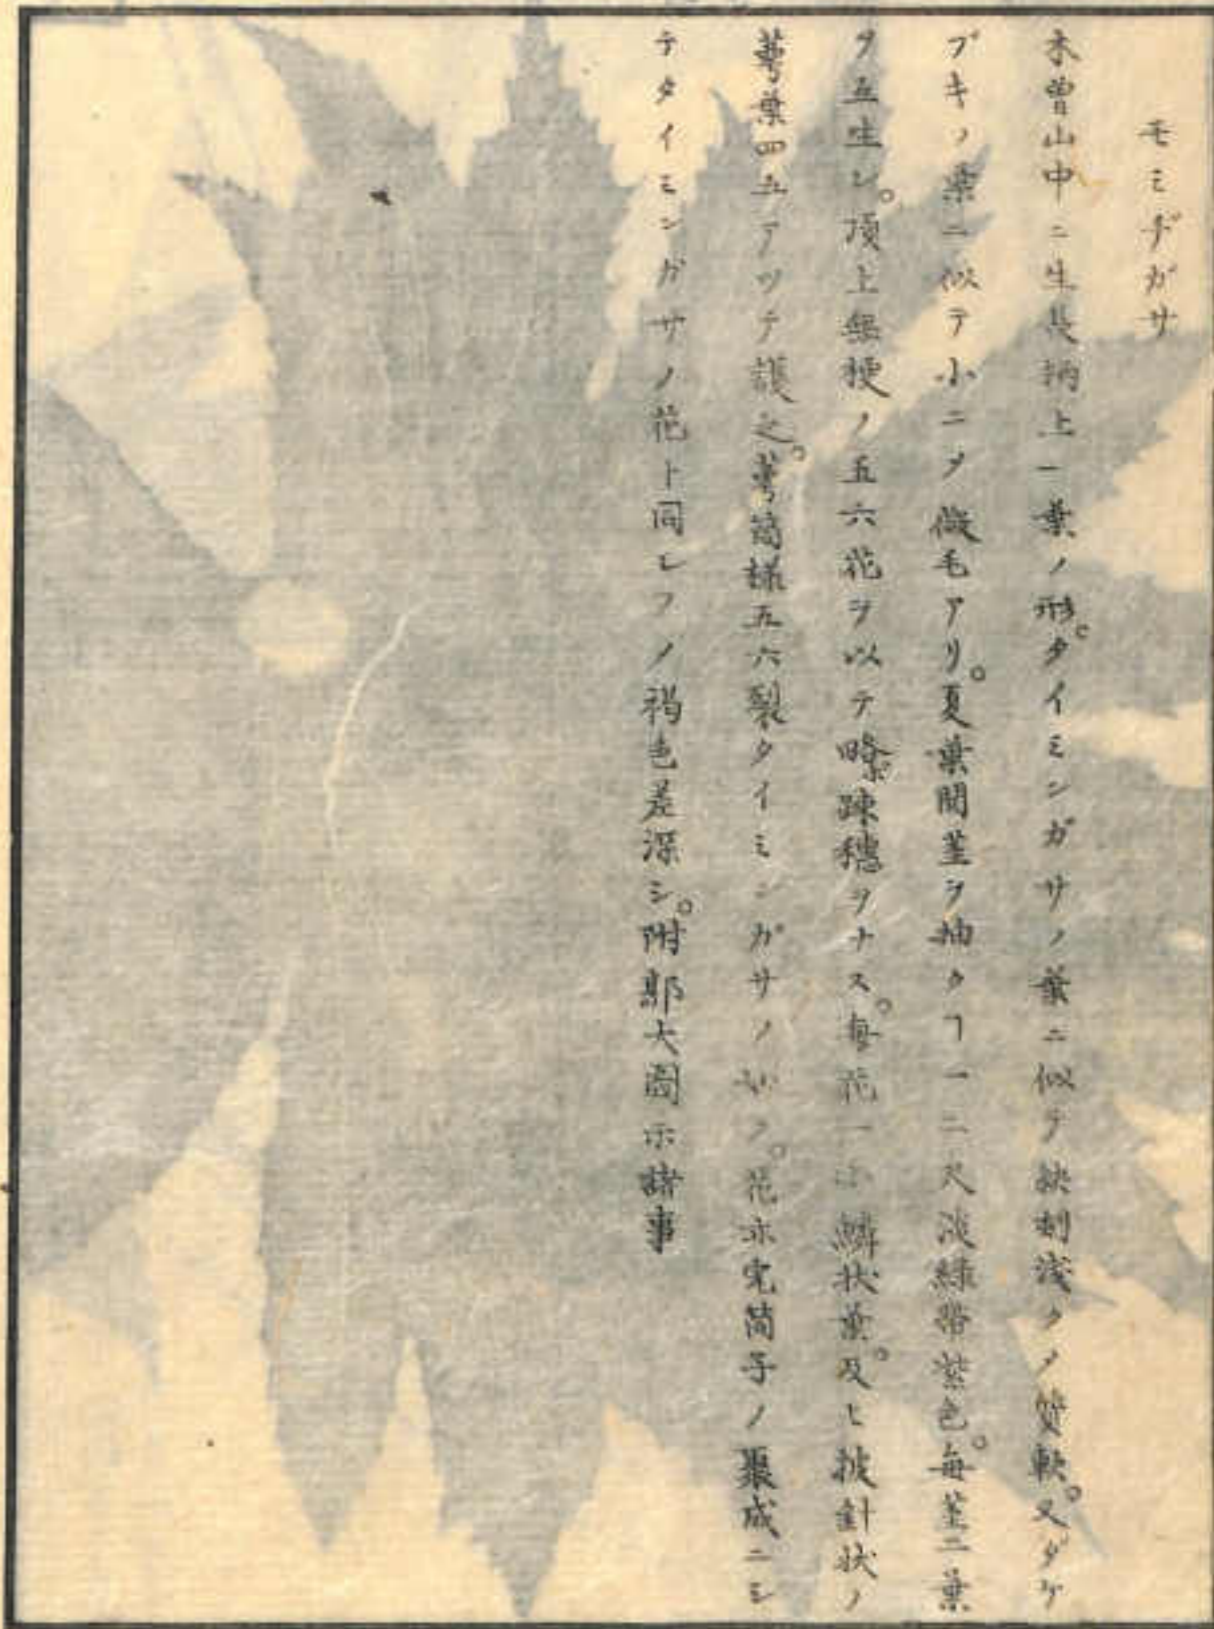 モミヂガサ
木曽山中ニ生長柄上一葉ノ形。タイミンガサノ葉ニ似テ鈌刻浅クメ質軟。又ダケ
ブキノ葉ニ似テ小ニメ微毛アリ。夏葉間茎ヲ抽クヿ一二尺淡緑帯紫色。毎茎二葉
ヲ互生シ。頂上無梗ノ五六花ヲ以テ略疎穂ヲナス。毎花一小鱗状葉。及ヒ披針状ノ
萼葉四五アツテ護之。萼筒様五六裂タイミンガサノ如ク。花亦宪筒子ノ聚成ニシ
テタイミンガサノ花ト同シフノ褐色差深シ。附郭大圖示諸事